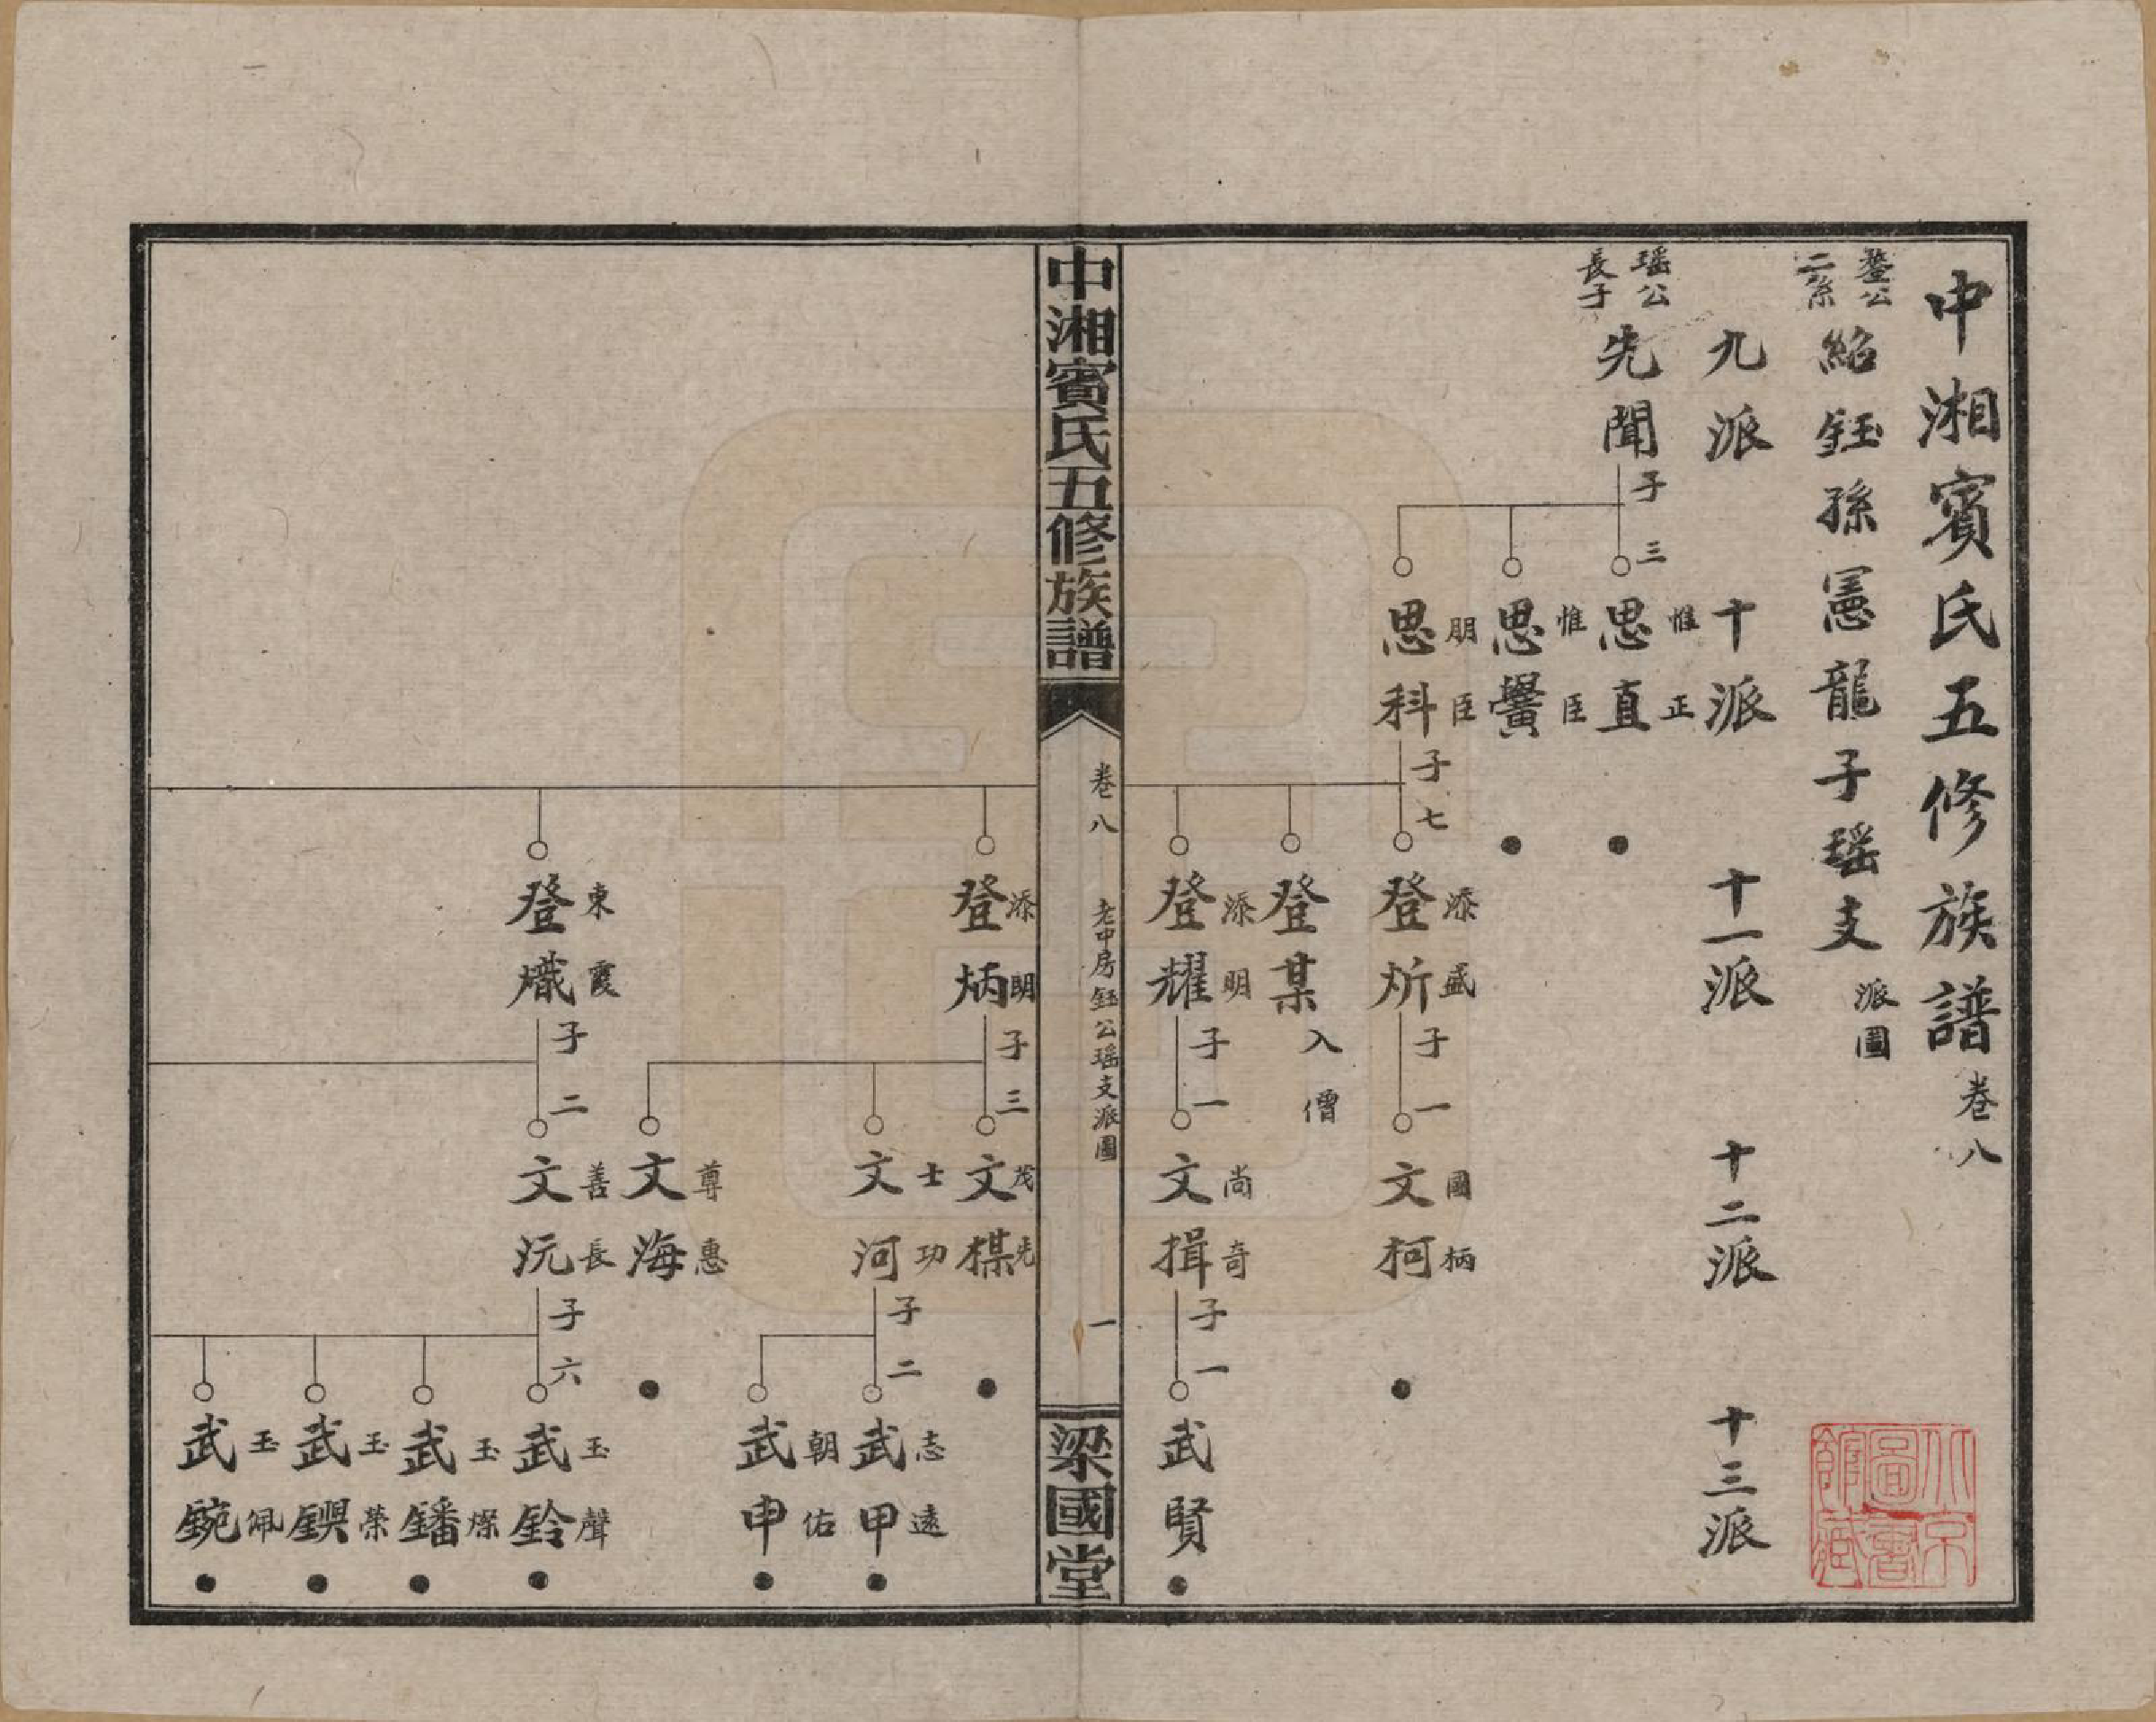 中湘賓氏五修族譜卷八
鏊公二系
紹鈺孫憲龍子瑶支派圖
九派 十派 十一派 十二派 十三派
瑶公長子
先聞 子三
思直 惟正
思黌 惟臣
思科 朋臣 子七
登炘 添盛 子一
文柯 國柄
登某 入僧
登耀 添明 子一
文揖 尚奇 子一
武賢
中湘賓氏五修族譜
卷八 老中房鈺公瑶支派圖 一
梁國堂
登炳 添明 子三
文楳 茂先
文河 士功 子二
武甲 志遠
武申 朝佑
文海 尊惠
登熾 東霞 子二
文沅 善長 子六
武鈴 玉聲
武鐇 玉燦
武鐭 玉榮
武鋺 玉佩
北京圖書館藏